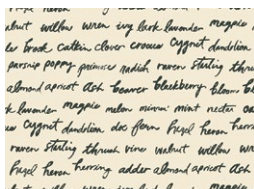 walnut willow wren ivy lark lavender magpie
brook catkin clover crocus cygnet dandelion
parsnip poppy primrose radish raven starling
almond apricot ash beaver blackberry bloom
lavender magpie melon minnow mint nectar
cygnet dandelion doe fawn hazel heron
raven starling thrush vines walnut willow
hazel heron herring adder almond apricot ash